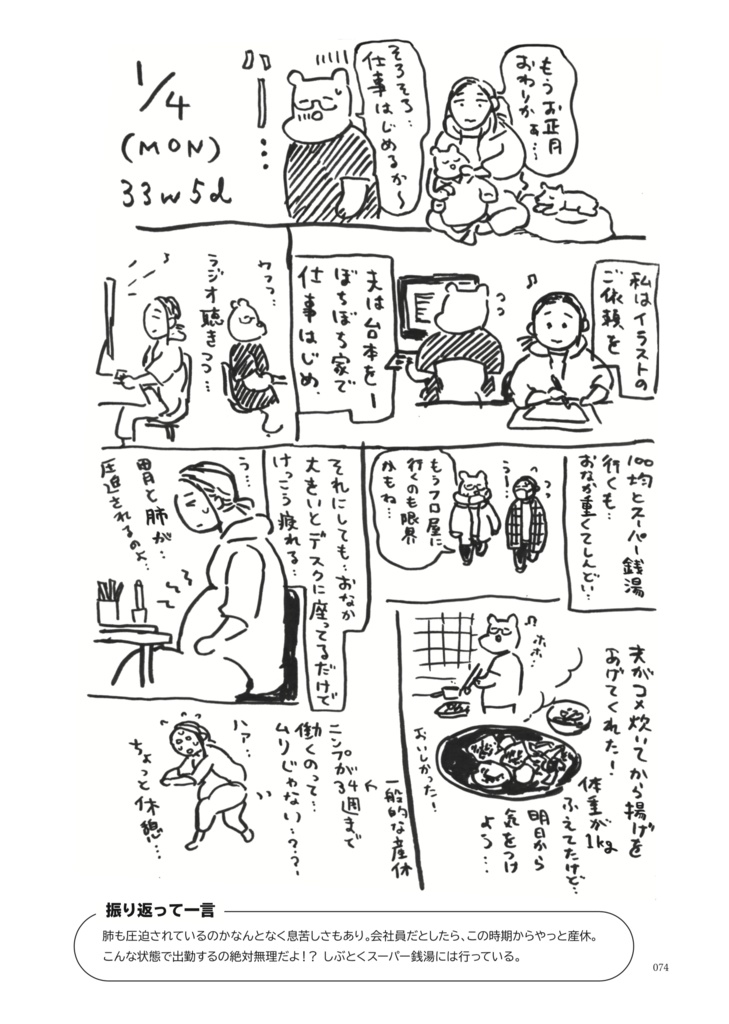 1/4
(MON)
33w5d
もうお正月
おわりかぁ…
そろそろ…
仕事はじめるか〜
パパ…
私はイラストの
ご依頼を
夫は台本をー
ぼちぼち家で
仕事はじめ.
ラジオ聴きつつ…
100均とスーパー銭湯
行くも…
おなか重くてしんどい…
う…
もうフロ屋に
行くのも限界
かもね…
それにしても…おなか
大きいとデスクに座ってるだけで
けっこう疲れる…
う…
胃と肺が…
圧迫されるのよ…
夫がコメ炊いてから揚げを
あげてくれた!
ホホ…
おいしかった!
体重が1kg
ふえてたけど…
明日から
気をつけ
よう…
一般的な産休
ニンプが34週まで
働くのって…
ムリじゃない…??
ハァ…
ちょっと休憩…
振り返って一言
肺も圧迫されているのかなんとなく息苦しさもあり。会社員だとしたら、この時期からやっと産休。
こんな状態で出勤するの絶対無理だよ!? しぶとくスーパー銭湯には行っている。
074